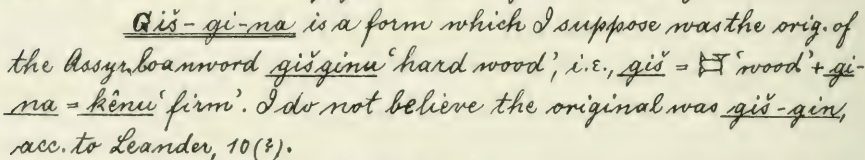 Giš-gi-na is a form which I suppose was the orig. of
the Assyr. loanword gišginu 'hard wood', i.e., giš = 𒄑 'wood' + gi-
na = kênu 'firm'. I do not believe the original was giš-gin,
acc. to Leander, 10(?).